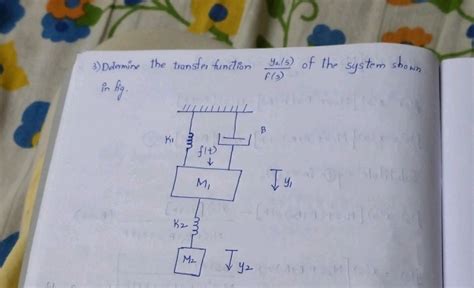 3) Determine the transfer function y₂(s)/F(s) of the system shown
in fig.
K₁
B
f(t)
M₁
y₁
K₂
M₂
y₂